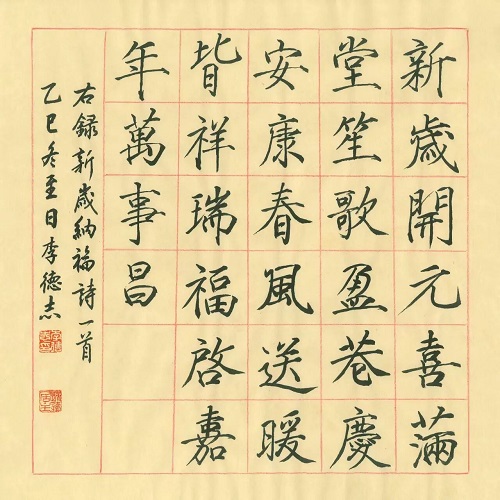 新歲開元喜滿
堂笙歌盈巷慶
安康春風送暖
皆祥瑞福啓嘉
年萬事昌
右録新歲納福詩一首
乙巳冬至日李德志